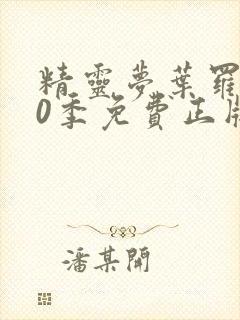 精靈夢葉羅
0季免費正版
潘某開